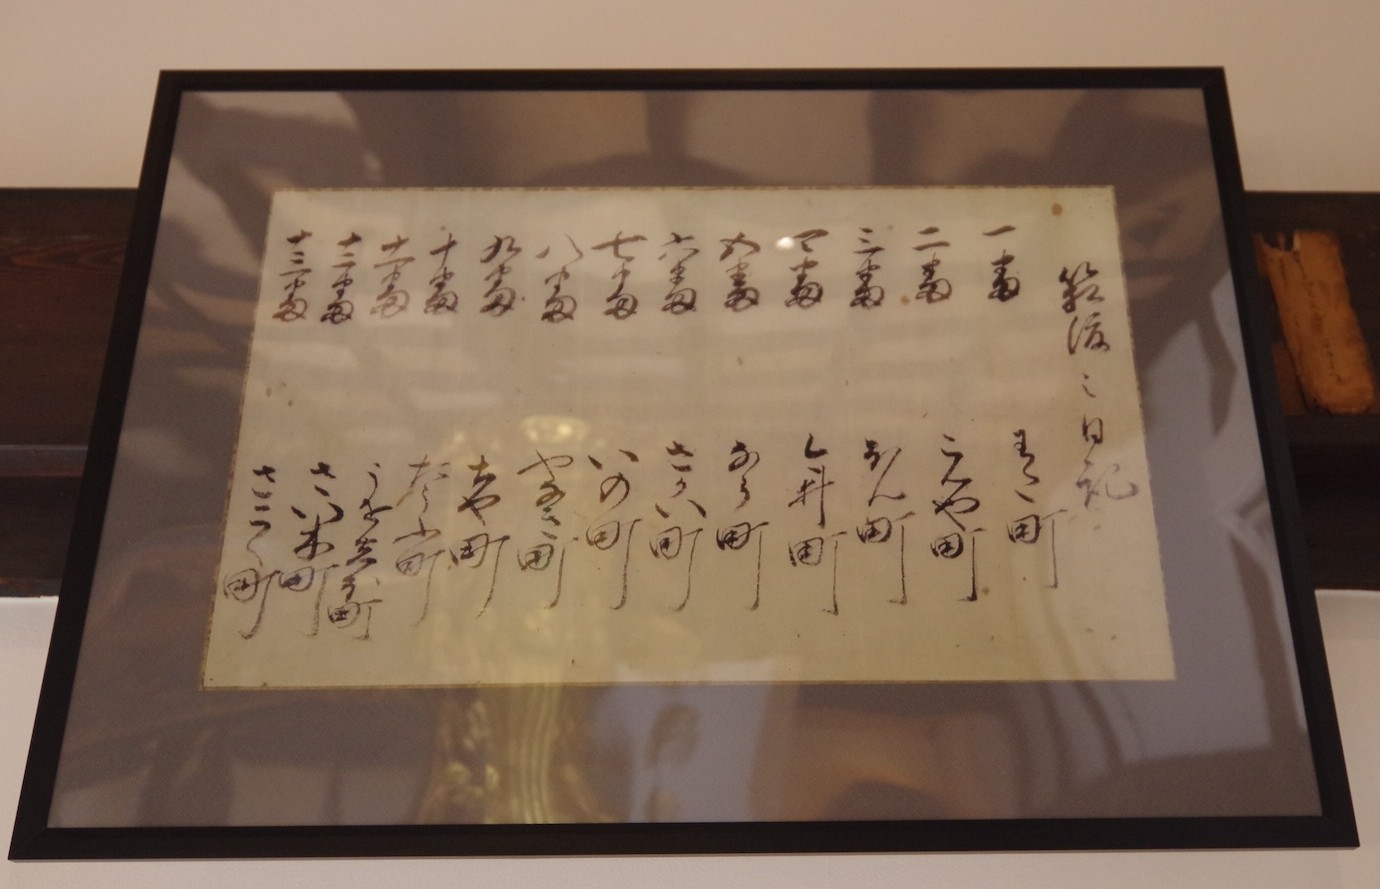 箱渡之日記
一番 わた町
二番 こんや町
三番 ほん町
四番 今井町
五番 なら町
六番 さかい町
七番 いの町
八番 やなき町
九番 ちや町
十番 たうふ町
十一番 町
十二番 さい木町
十三番 さこく町